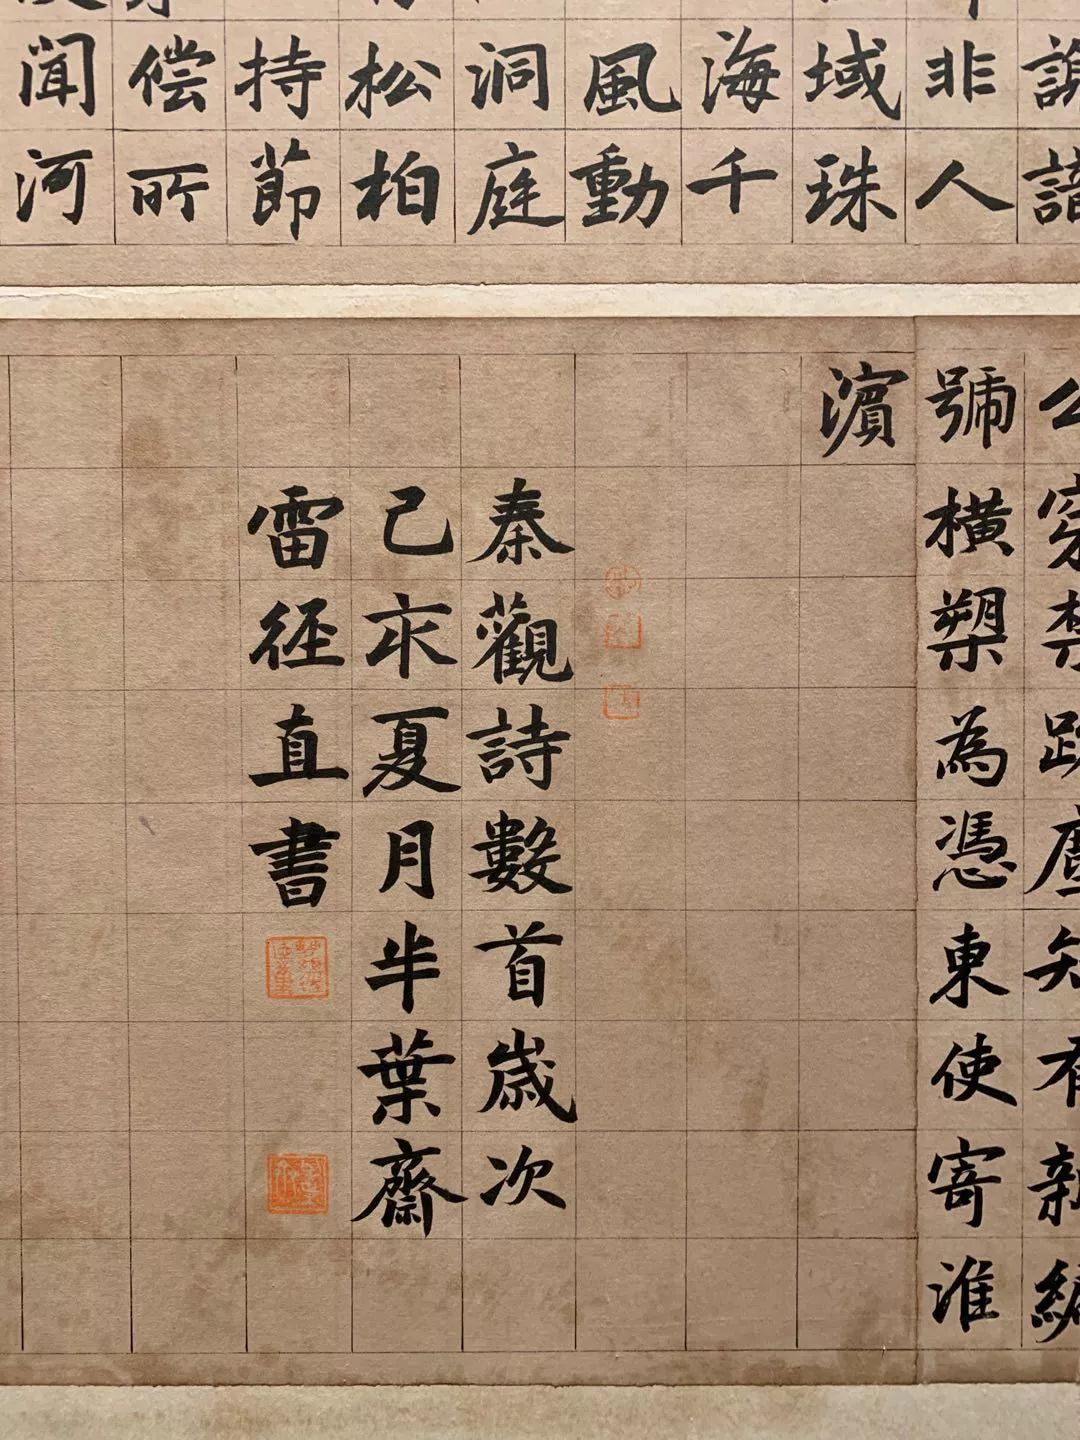 謝諧
非人
域珠
海千
風動
洞庭
松柏
持節
偿所
聞河
號橫槊為憑東使寄淮
濵
秦觀詩數首歲次
己亥夏月半葉齋
雷徑直書